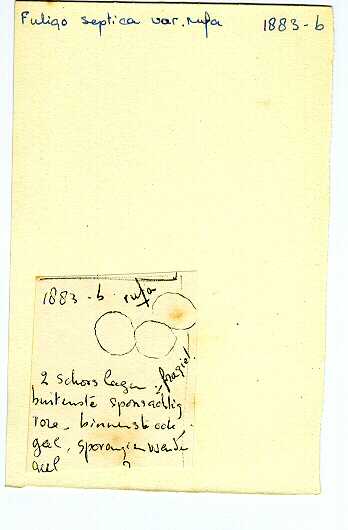 Fuligo septica var. rufa 1883-b
1883-b rufa
2 schors lagen: fragiel.
buitenste sponsachtig
roze, binnenste ook
geel, sporangienwand
geel ?